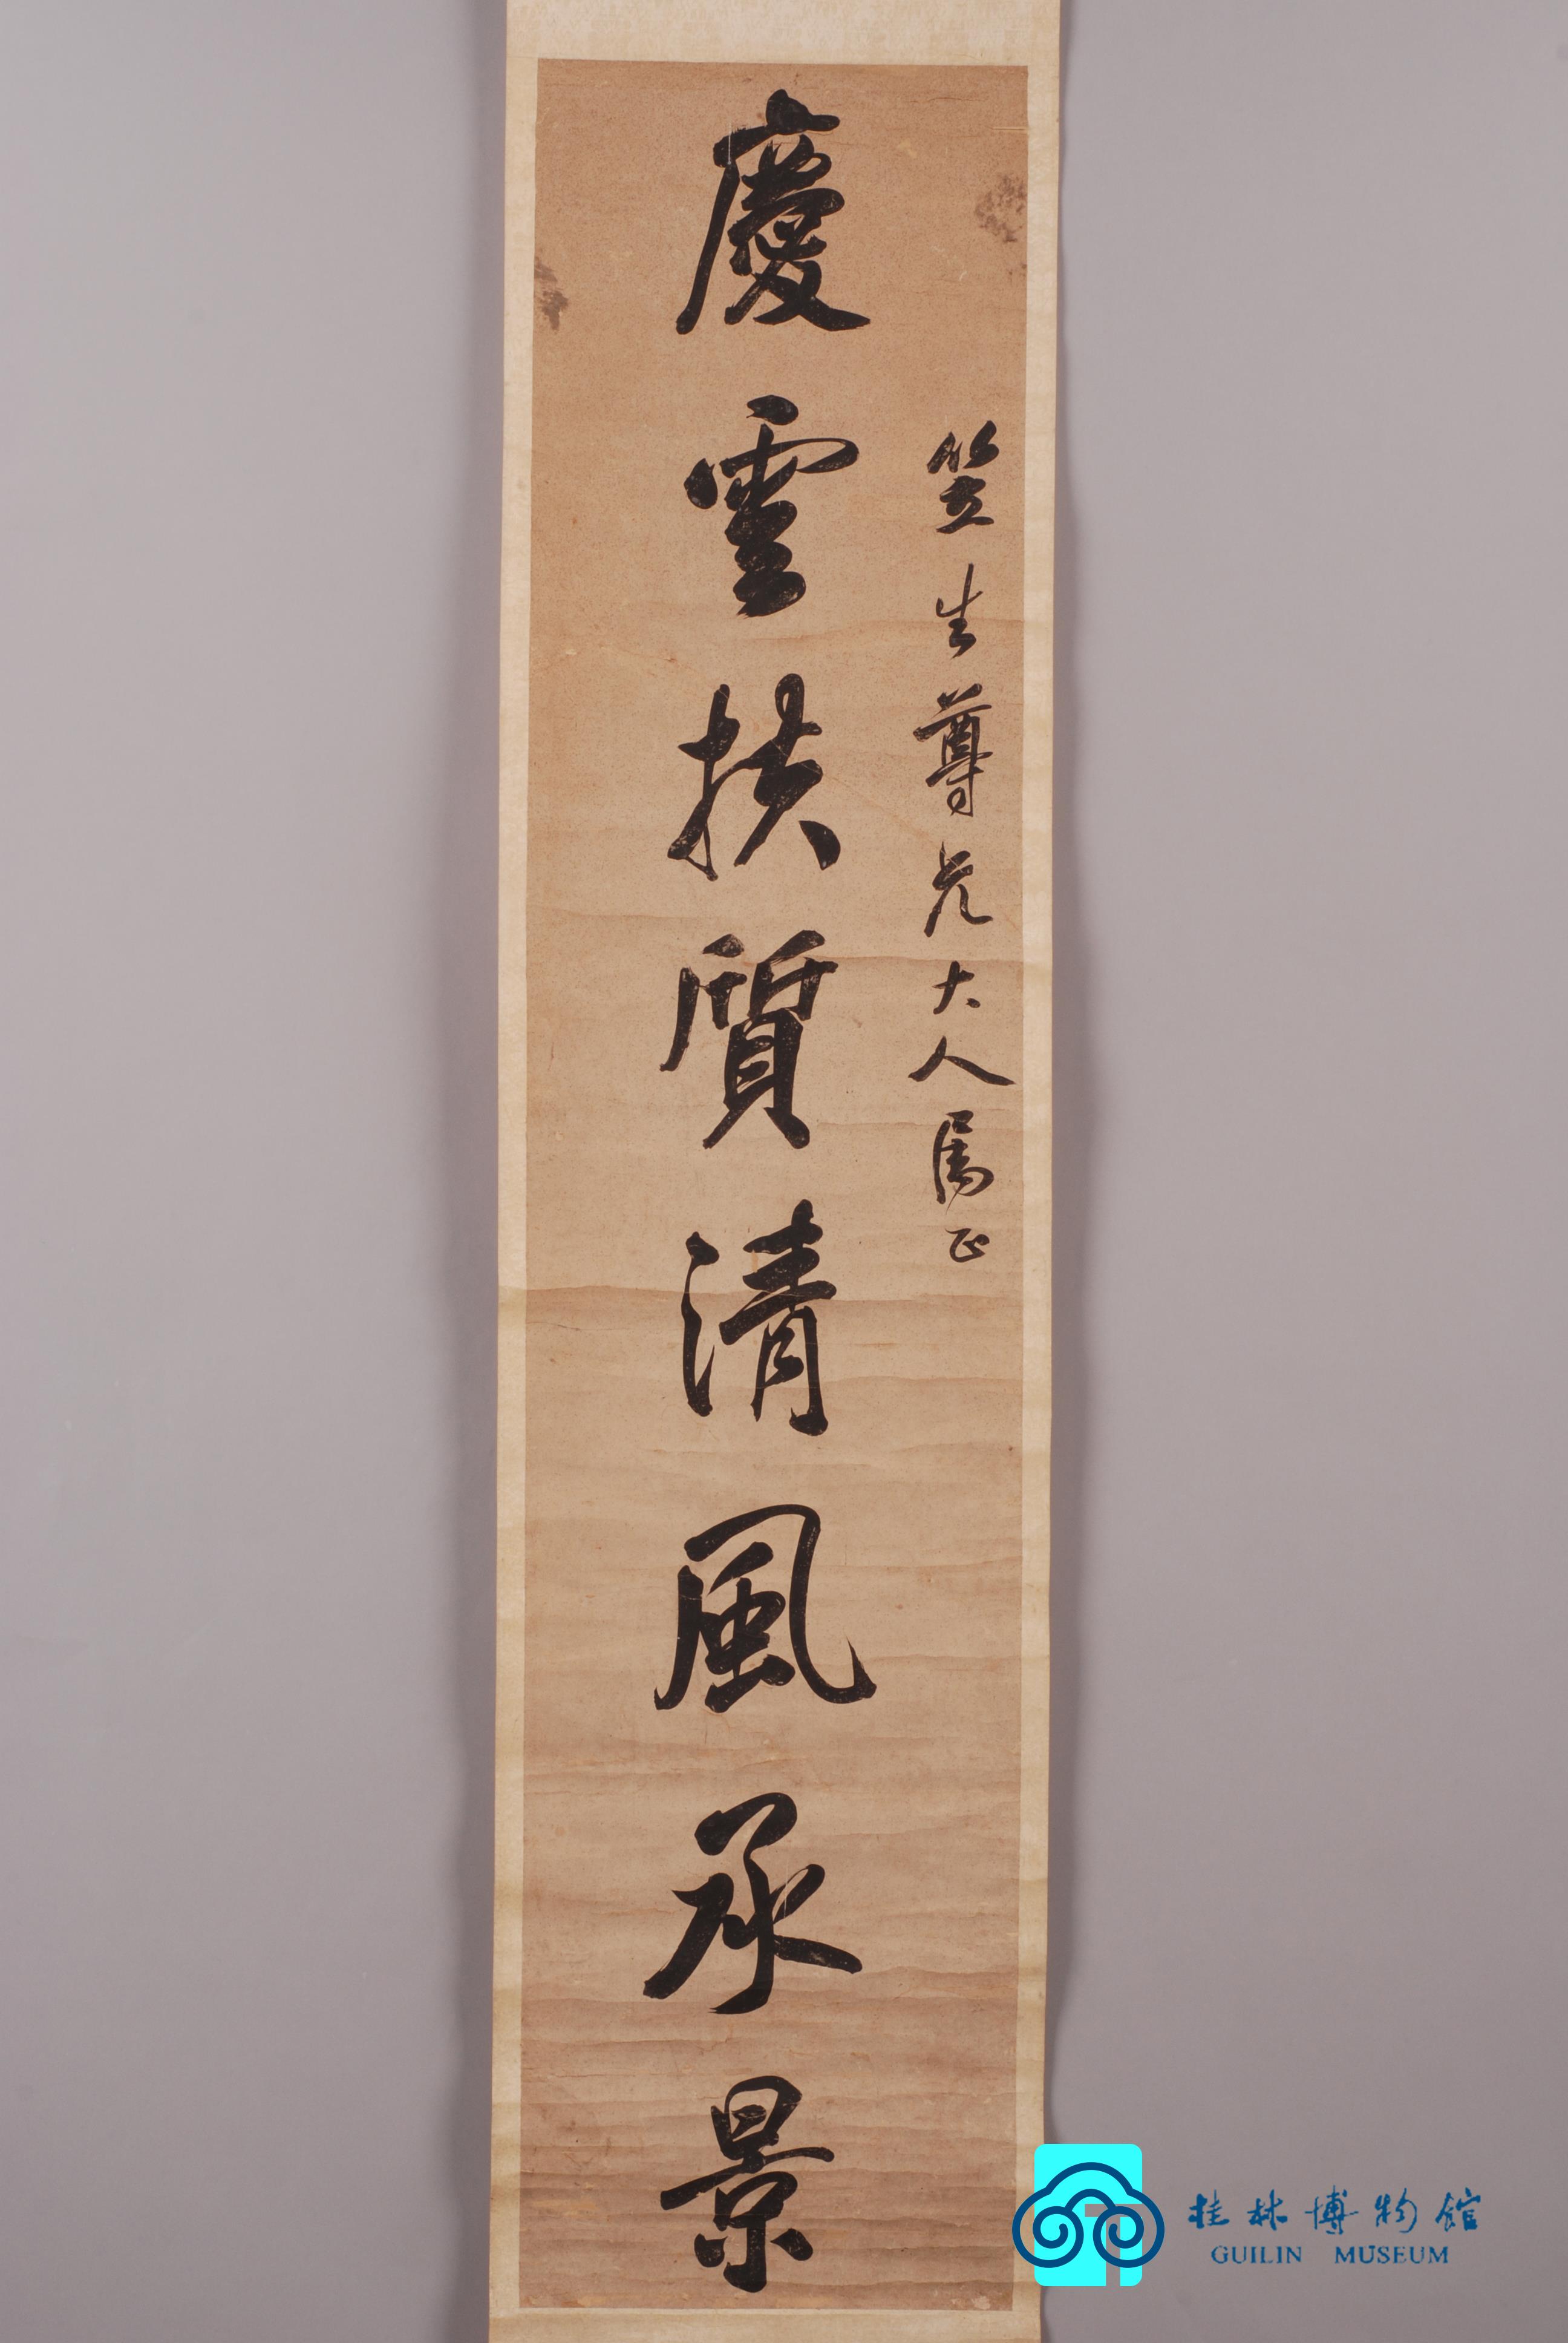 笠生尊兄大人属正
慶雲扶質清風承景
桂林博物館
GUILIN MUSEUM